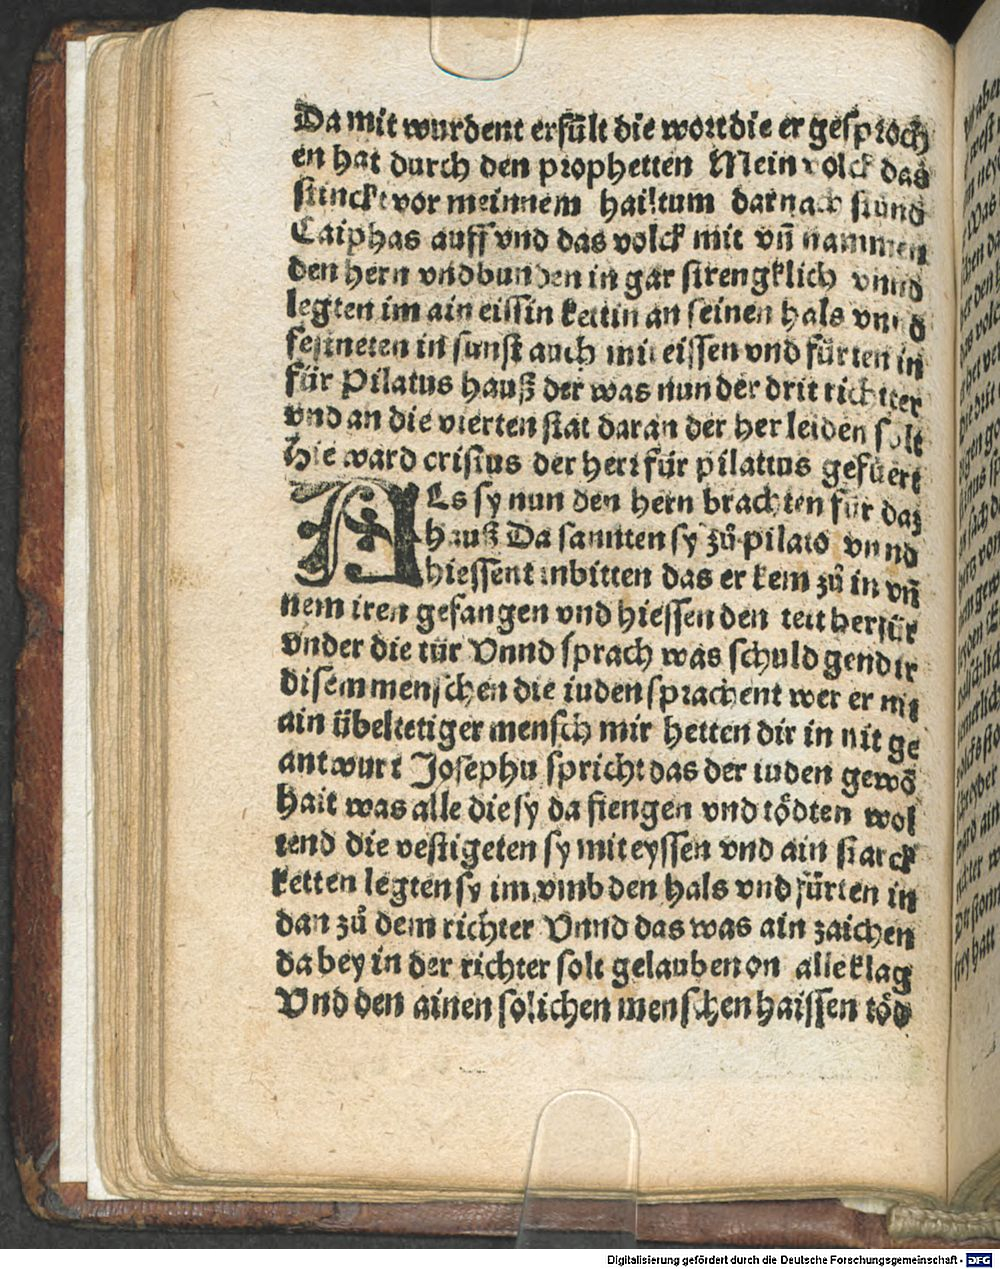 Da mit wurdent erfült die wort die er gesproch
en hat durch den prophetten Mein volck das
stinckt vor meinnem hailtum darnach stůnd
Caiphas auff vnd das volck mit vñ nammen
den hern vnd bunden in gar strengklich vnnd
legten im ain eissin kettin an seinen hals vnnd
festneten in sunst auch mit eissen vnd fürten in
für Pilatus hauß der was nun der drit richtter
vnd an die vierten stat daran der her leiden solt
Hie ward cristus der herr für pilattus gefüert
ALs sy nun den hern brachten für daz
hauß Da sannten sy zů pilato vnnd
hiessent inbitten das er kem zů in vñ
nem iren gefangen vnd hiessen den herfür
vnder die tür Vnnd sprach was schuld gend ir
disem menschen die iuden sprachent wer er nit
ain übeltetiger mensch mir hetten dir in nit ge
antwurt Josephu spricht das der iuden gewō
hait was alle die sy da fiengen vnd tödten wol
tend die vestigeten sy mit eyssen vnd ain starck
ketten legten sy im vmb den hals vnd fürten in
dan zů dem richter Vnnd das was ain zaichen
da bey in der richter solt gelauben on alle klag
Vnd den ainen solichen menschen haissen töd
Digitalisierung gefördert durch die Deutsche Forschungsgemeinschaft - DFG